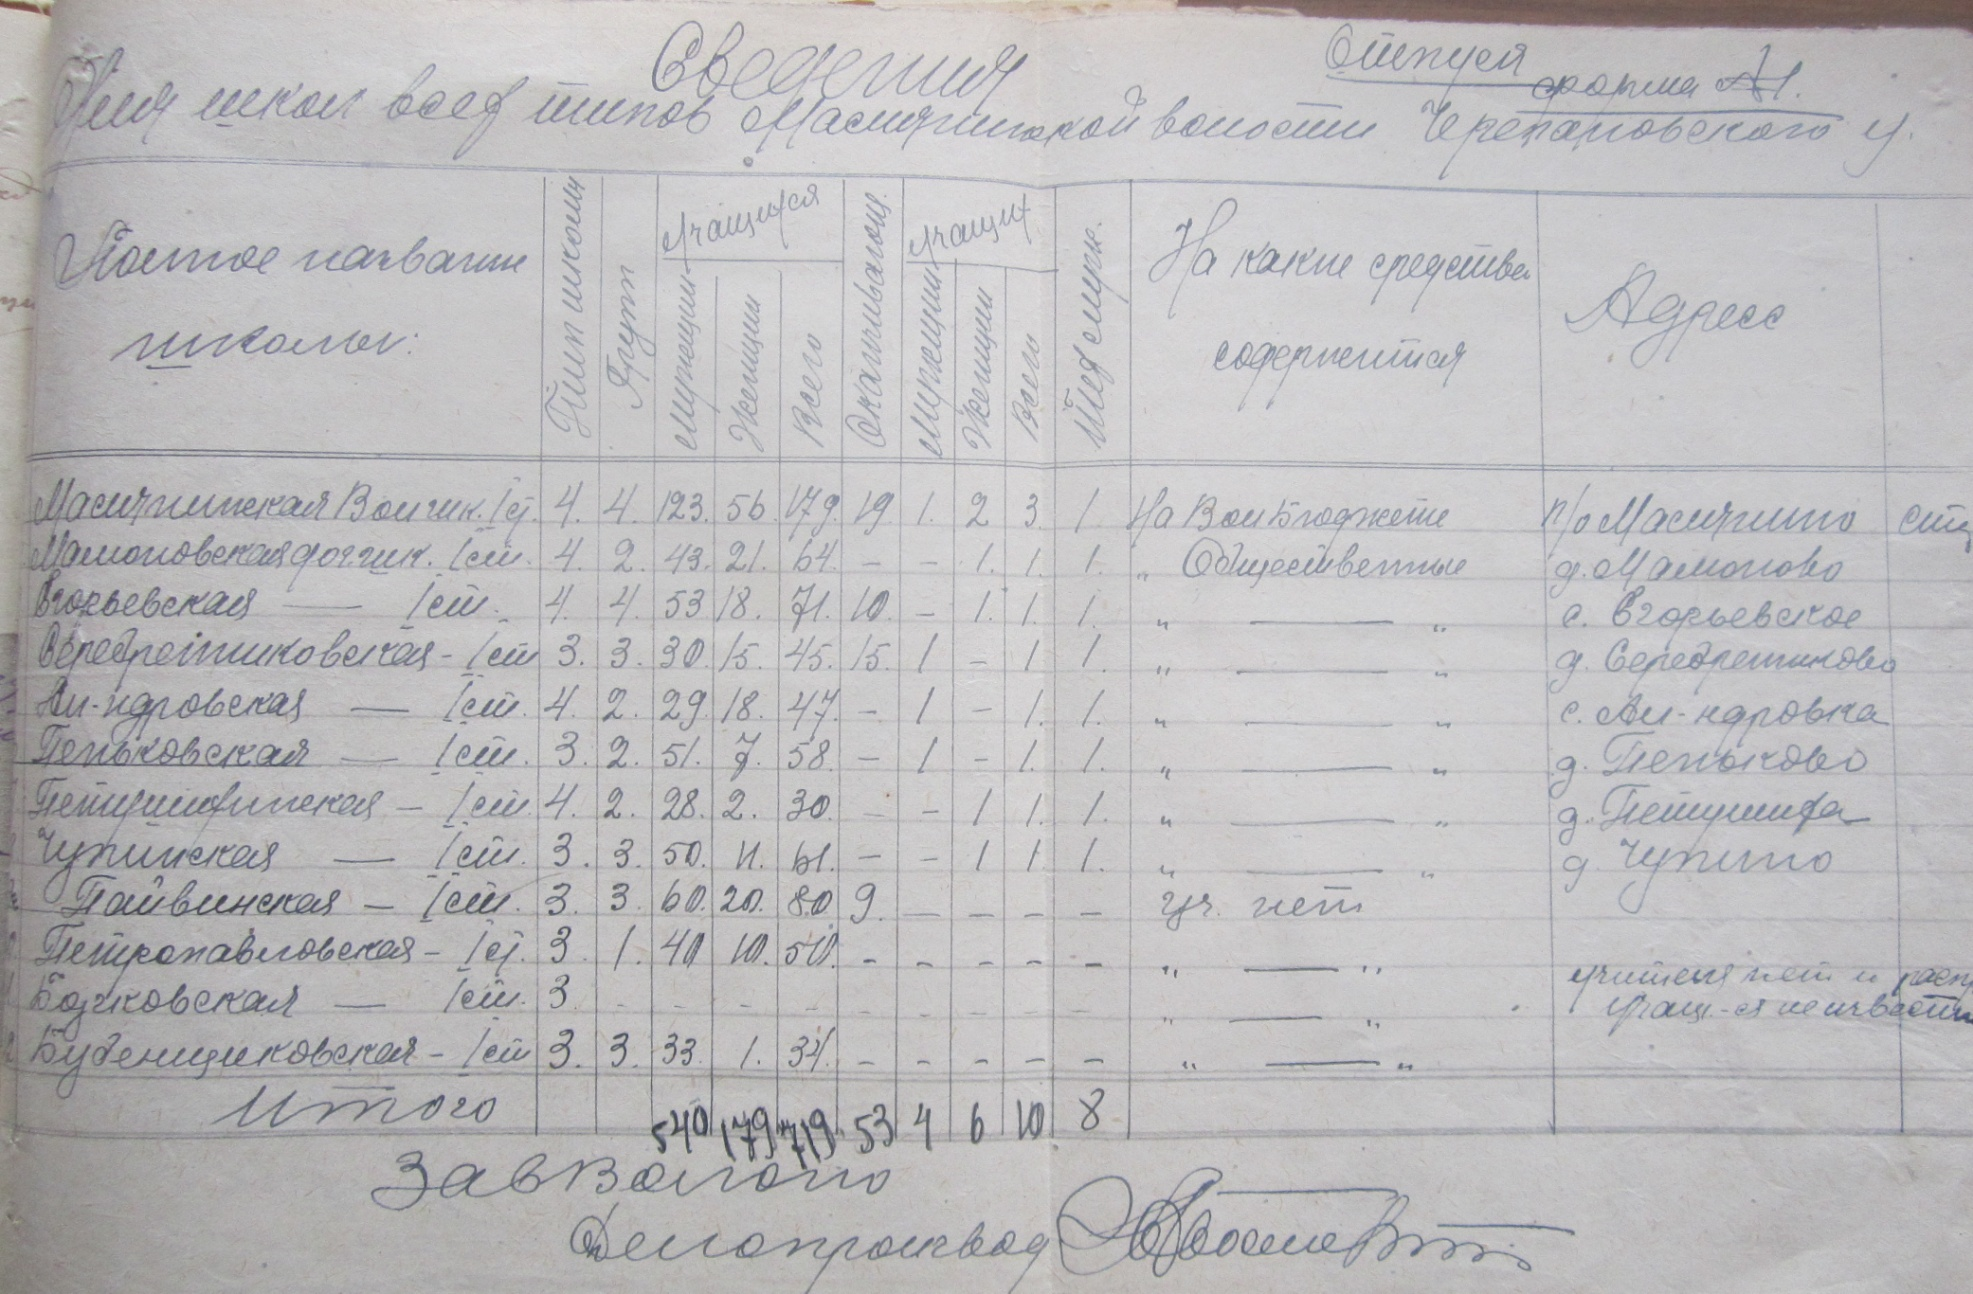 Сведения
Отпуск
форма №1.
Для школ всех типов Маслянинской волости Черепановского у.
Полное название школы:
Тип школы
Групп
Учащихся
Мужчин
Женщин
Всего
Оканчивающ.
Учащих
Мужчин
Женщин
Всего
Тех служ.
На какие средства содержится
Адресс
Маслянинская Волшк. I ст. 4. 4. 123. 56 179. 19. 1. 2 3. 1. На Вол Бюджете п/о Маслянино
Мамоновская I ст. 4. 2. 43. 21. 64. – – 1. 1. 1. „ Общественные д. Мамоново
Егорьевская — I ст. 4. 4. 53 18. 71. 10. – 1. 1. 1. „ — „ с. Егорьевское
Серебренниковская - I ст 3. 3. 30. 15. 45. 15. 1 – 1 1. „ — „ д. Серебренниково
Ал-ндровская — I ст. 4. 2. 29. 18. 47. – 1 – 1. 1. „ — „ с. Ал-ндровка
Пеньковская — I ст. 3. 2. 51. 7. 58. – 1 – 1. 1. „ — „ д. Пеньково
Петушихинская – I ст. 4. 2. 28. 2. 30. – – 1 1. 1. „ — „ д. Петушиха
Чупинская — I ст. 3. 3. 50. 11. 61. – – 1 1 1. „ — „ д. Чупино
Пайвинская – I ст. 3. 3. 60. 20. 80 9. – – – – уч. нет
Петропавловская - I ст. 3. 1. 40 10. 50. - - - - - „ — „
Бочковская — I ст. 3. - - - - - - - - - „ — „ учителя нет и
учащ-ся неизвестно
Бубенщиковская - I ст 3. 3. 33. 1. 34. – – – – – „ — „
Итого 540 179 719 53 4 6 10 8
ЗавВолоно
Делопроизвод